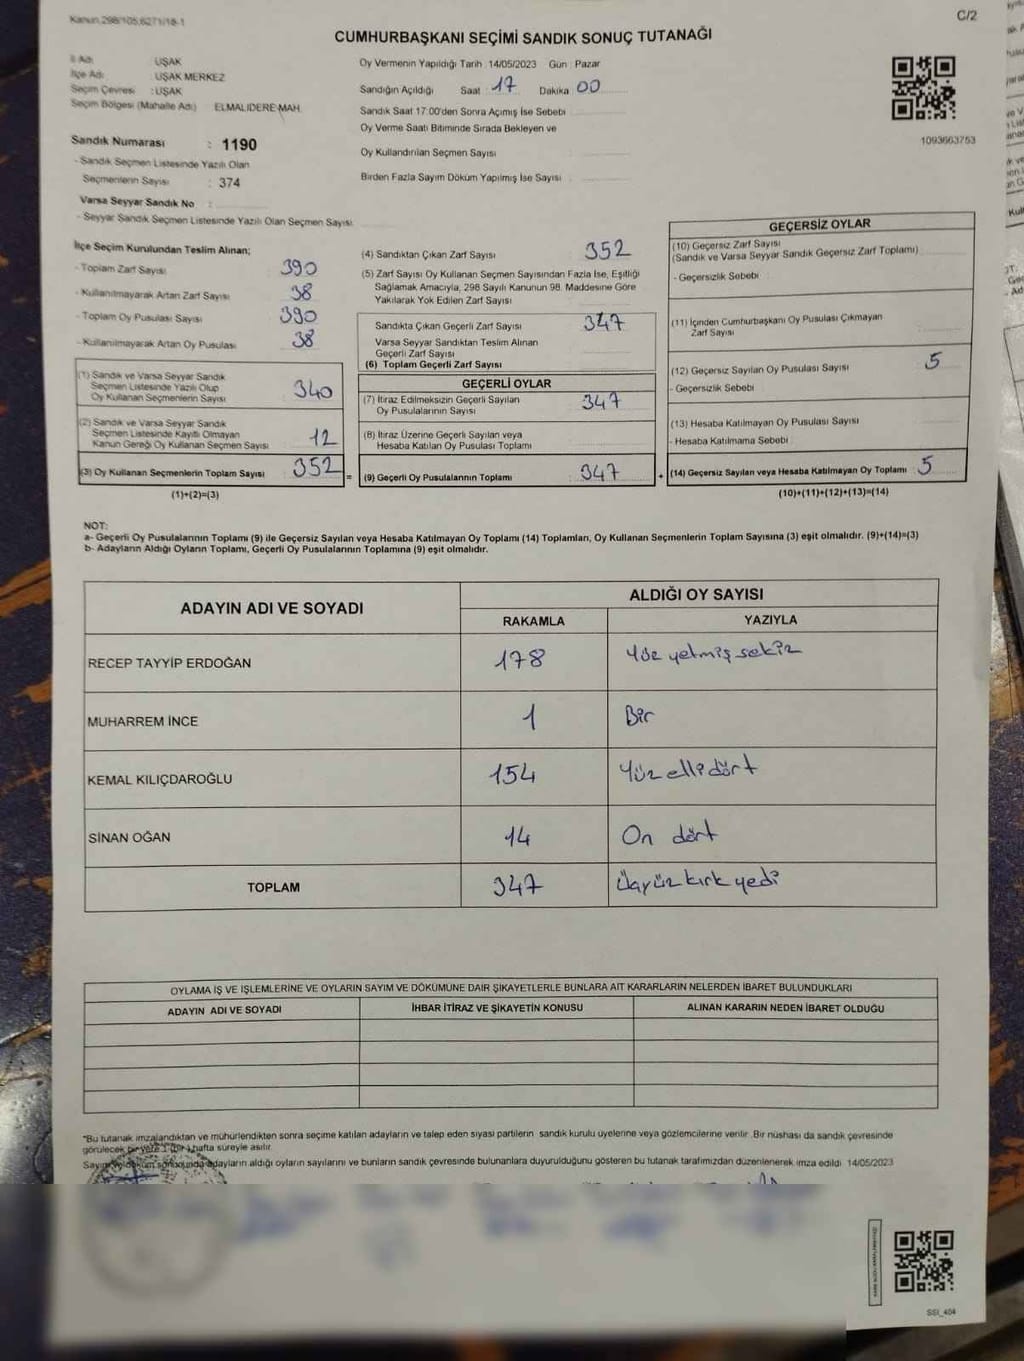 Kanun,298/105,6271/18-1
C/2
CUMHURBAŞKANI SEÇİMİ SANDIK SONUÇ TUTANAĞI
İl Adı : UŞAK
İlçe Adı : UŞAK MERKEZ
Seçim Çevresi : UŞAK
Seçim Bölgesi (Mahalle Adı) ELMALIDERE MAH.
Sandık Numarası : 1190
- Sandık Seçmen Listesinde Yazılı Olan
Seçmenlerin Sayısı : 374
Varsa Seyyar Sandık No :
- Seyyar Sandık Seçmen Listesinde Yazılı Olan Seçmen Sayısı
Oy Vermenin Yapıldığı Tarih 14/05/2023 Gün : Pazar
Sandığın Açıldığı Saat 17 Dakika 00
Sandık Saat 17:00'den Sonra Açımış İse Sebebi
Oy Verme Saati Bitiminde Sırada Bekleyen ve
Oy Kullandırılan Seçmen Sayısı
Birden Fazla Sayım Döküm Yapılmış İse Sayısı
1093663753
İlçe Seçim Kurulundan Teslim Alınan;
- Toplam Zarf Sayısı 390
- Kullanılmayarak Artan Zarf Sayısı 38
- Toplam Oy Pusulası Sayısı 390
- Kullanılmayarak Artan Oy Pusulası 38
(1) Sandık ve Varsa Seyyar Sandık
Seçmen Listesinde Yazılı Olup
Oy Kullanan Seçmenlerin Sayısı 340
(2) Sandık ve Varsa Seyyar Sandık
Seçmen Listesinde Kayıtlı Olmayan
Kanun Gereği Oy Kullanan Seçmen Sayısı 12
(3) Oy Kullanan Seçmenlerin Toplam Sayısı 352
(1)+(2)=(3)
(4) Sandıktan Çıkan Zarf Sayısı 352
(5) Zarf Sayısı Oy Kullanan Seçmen Sayısından Fazla İse, Eşitliği
Sağlamak Amacıyla, 298 Sayılı Kanunun 98. Maddesine Göre
Yakılarak Yok Edilen Zarf Sayısı
Sandıkta Çıkan Geçerli Zarf Sayısı 347
Varsa Seyyar Sandıktan Teslim Alınan
Geçerli Zarf Sayısı
(6) Toplam Geçerli Zarf Sayısı
GEÇERLİ OYLAR
(7) İtiraz Edilmeksizin Geçerli Sayılan
Oy Pusulalarının Sayısı 347
(8) İtiraz Üzerine Geçerli Sayılan veya
Hesaba Katılan Oy Pusulası Toplamı
= (9) Geçerli Oy Pusulalarının Toplamı 347
GEÇERSİZ OYLAR
(10) Geçersiz Zarf Sayısı
(Sandık ve Varsa Seyyar Sandık Geçersiz Zarf Toplamı)
- Geçersizlik Sebebi
(11) İçinden Cumhurbaşkanı Oy Pusulası Çıkmayan
Zarf Sayısı
(12) Geçersiz Sayılan Oy Pusulası Sayısı 5
- Geçersizlik Sebebi
(13) Hesaba Katılmayan Oy Pusulası Sayısı
- Hesaba Katılmama Sebebi
+ (14) Geçersiz Sayılan veya Hesaba Katılmayan Oy Toplamı 5
(10)+(11)+(12)+(13)=(14)
NOT:
a- Geçerli Oy Pusulalarının Toplamı (9) ile Geçersiz Sayılan veya Hesaba Katılmayan Oy Toplamı (14) Toplamları, Oy Kullanan Seçmenlerin Toplam Sayısına (3) eşit olmalıdır. (9)+(14)=(3)
b- Adayların Aldığı Oyların Toplamı, Geçerli Oy Pusulalarının Toplamına (9) eşit olmalıdır.
ADAYIN ADI VE SOYADI
ALDIĞI OY SAYISI
RAKAMLA YAZIYLA
RECEP TAYYİP ERDOĞAN 178 Yüz yetmiş sekiz
MUHARREM İNCE 1 Bir
KEMAL KILIÇDAROĞLU 154 Yüz elli dört
SİNAN OĞAN 14 On dört
TOPLAM 347 Üçyüz kırk yedi
OYLAMA İŞ VE İŞLEMLERİNE VE OYLARIN SAYIM VE DÖKÜMÜNE DAİR ŞİKAYETLERLE BUNLARA AİT KARARLARIN NELERDEN İBARET BULUNDUKLARI
ADAYIN ADI VE SOYADI İHBAR İTİRAZ VE ŞİKAYETİN KONUSU ALINAN KARARIN NEDEN İBARET OLDUĞU
*Bu tutanak imzalandıktan ve mühürlendikten sonra seçime katılan adayların ve talep eden siyasi partilerin sandık kurulu üyelerine veya gözlemcilerine verilir. Bir nüshası da sandık çevresinde
görülecek bir yere 1 (bir) hafta süreyle asılır.
Sayım ve döküm sonucunda adayların aldığı oyların sayılarını ve bunların sandık çevresinde bulunanlara duyurulduğunu gösteren bu tutanak tarafımızdan düzenlenerek imza edildi 14/05/2023
SSI_404